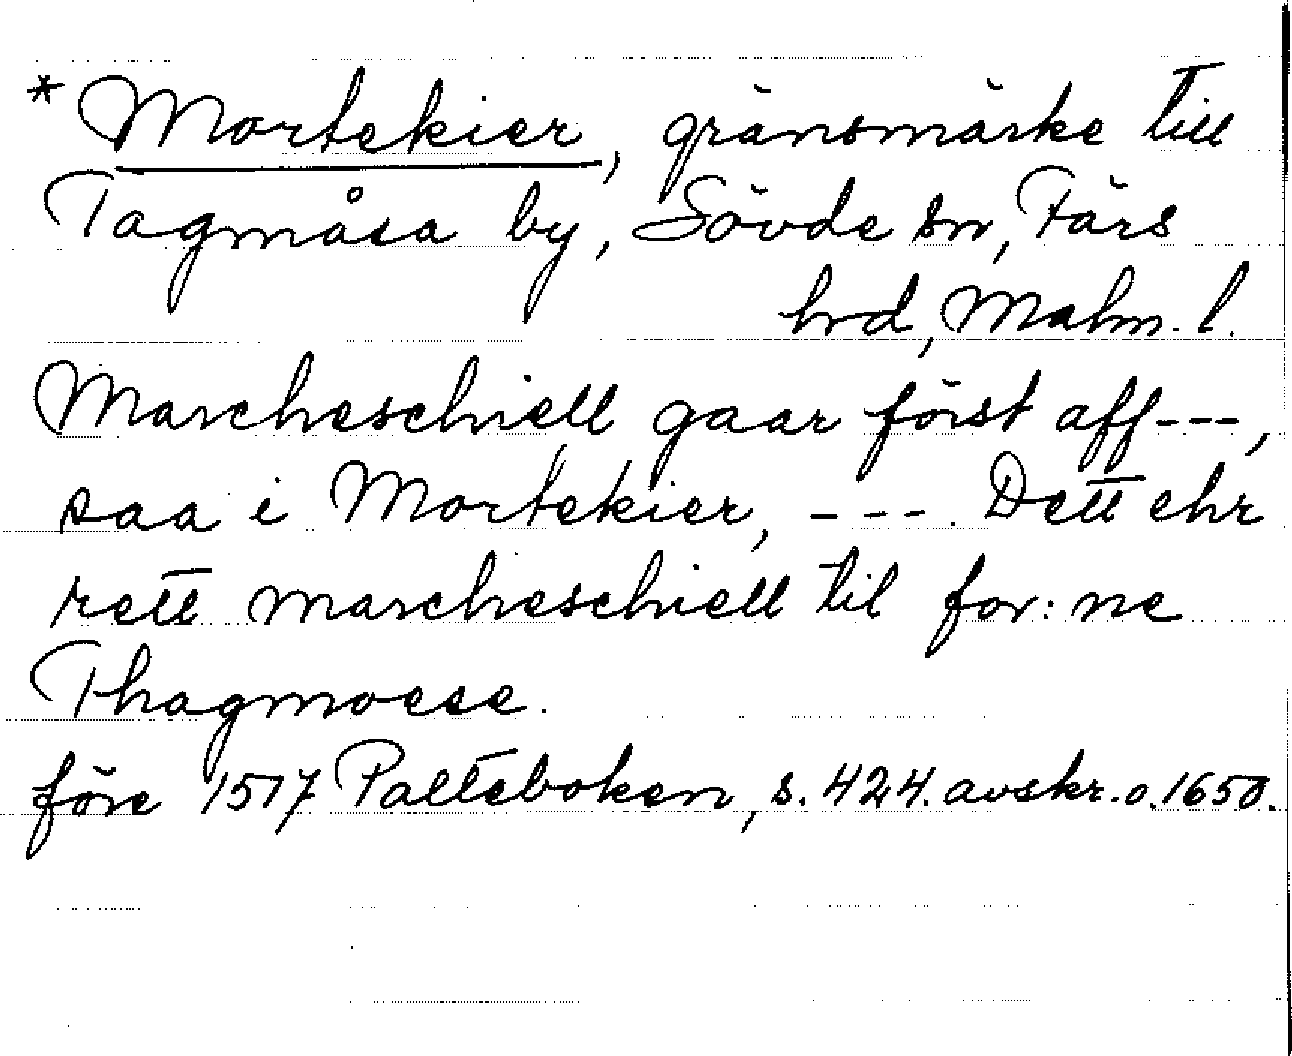 * Mortekier, gränsmärke till
Tagmåsa by, Sövde sn, Färs
hrd, Malm. l.
Marcheschiell gaar först aff---,
saa i Mortekier, ---. Dett ehr
rett marcheschiell til for: ne
Thagmoese.
före 1517 Palteboken, s. 424. avskr. o. 1650.